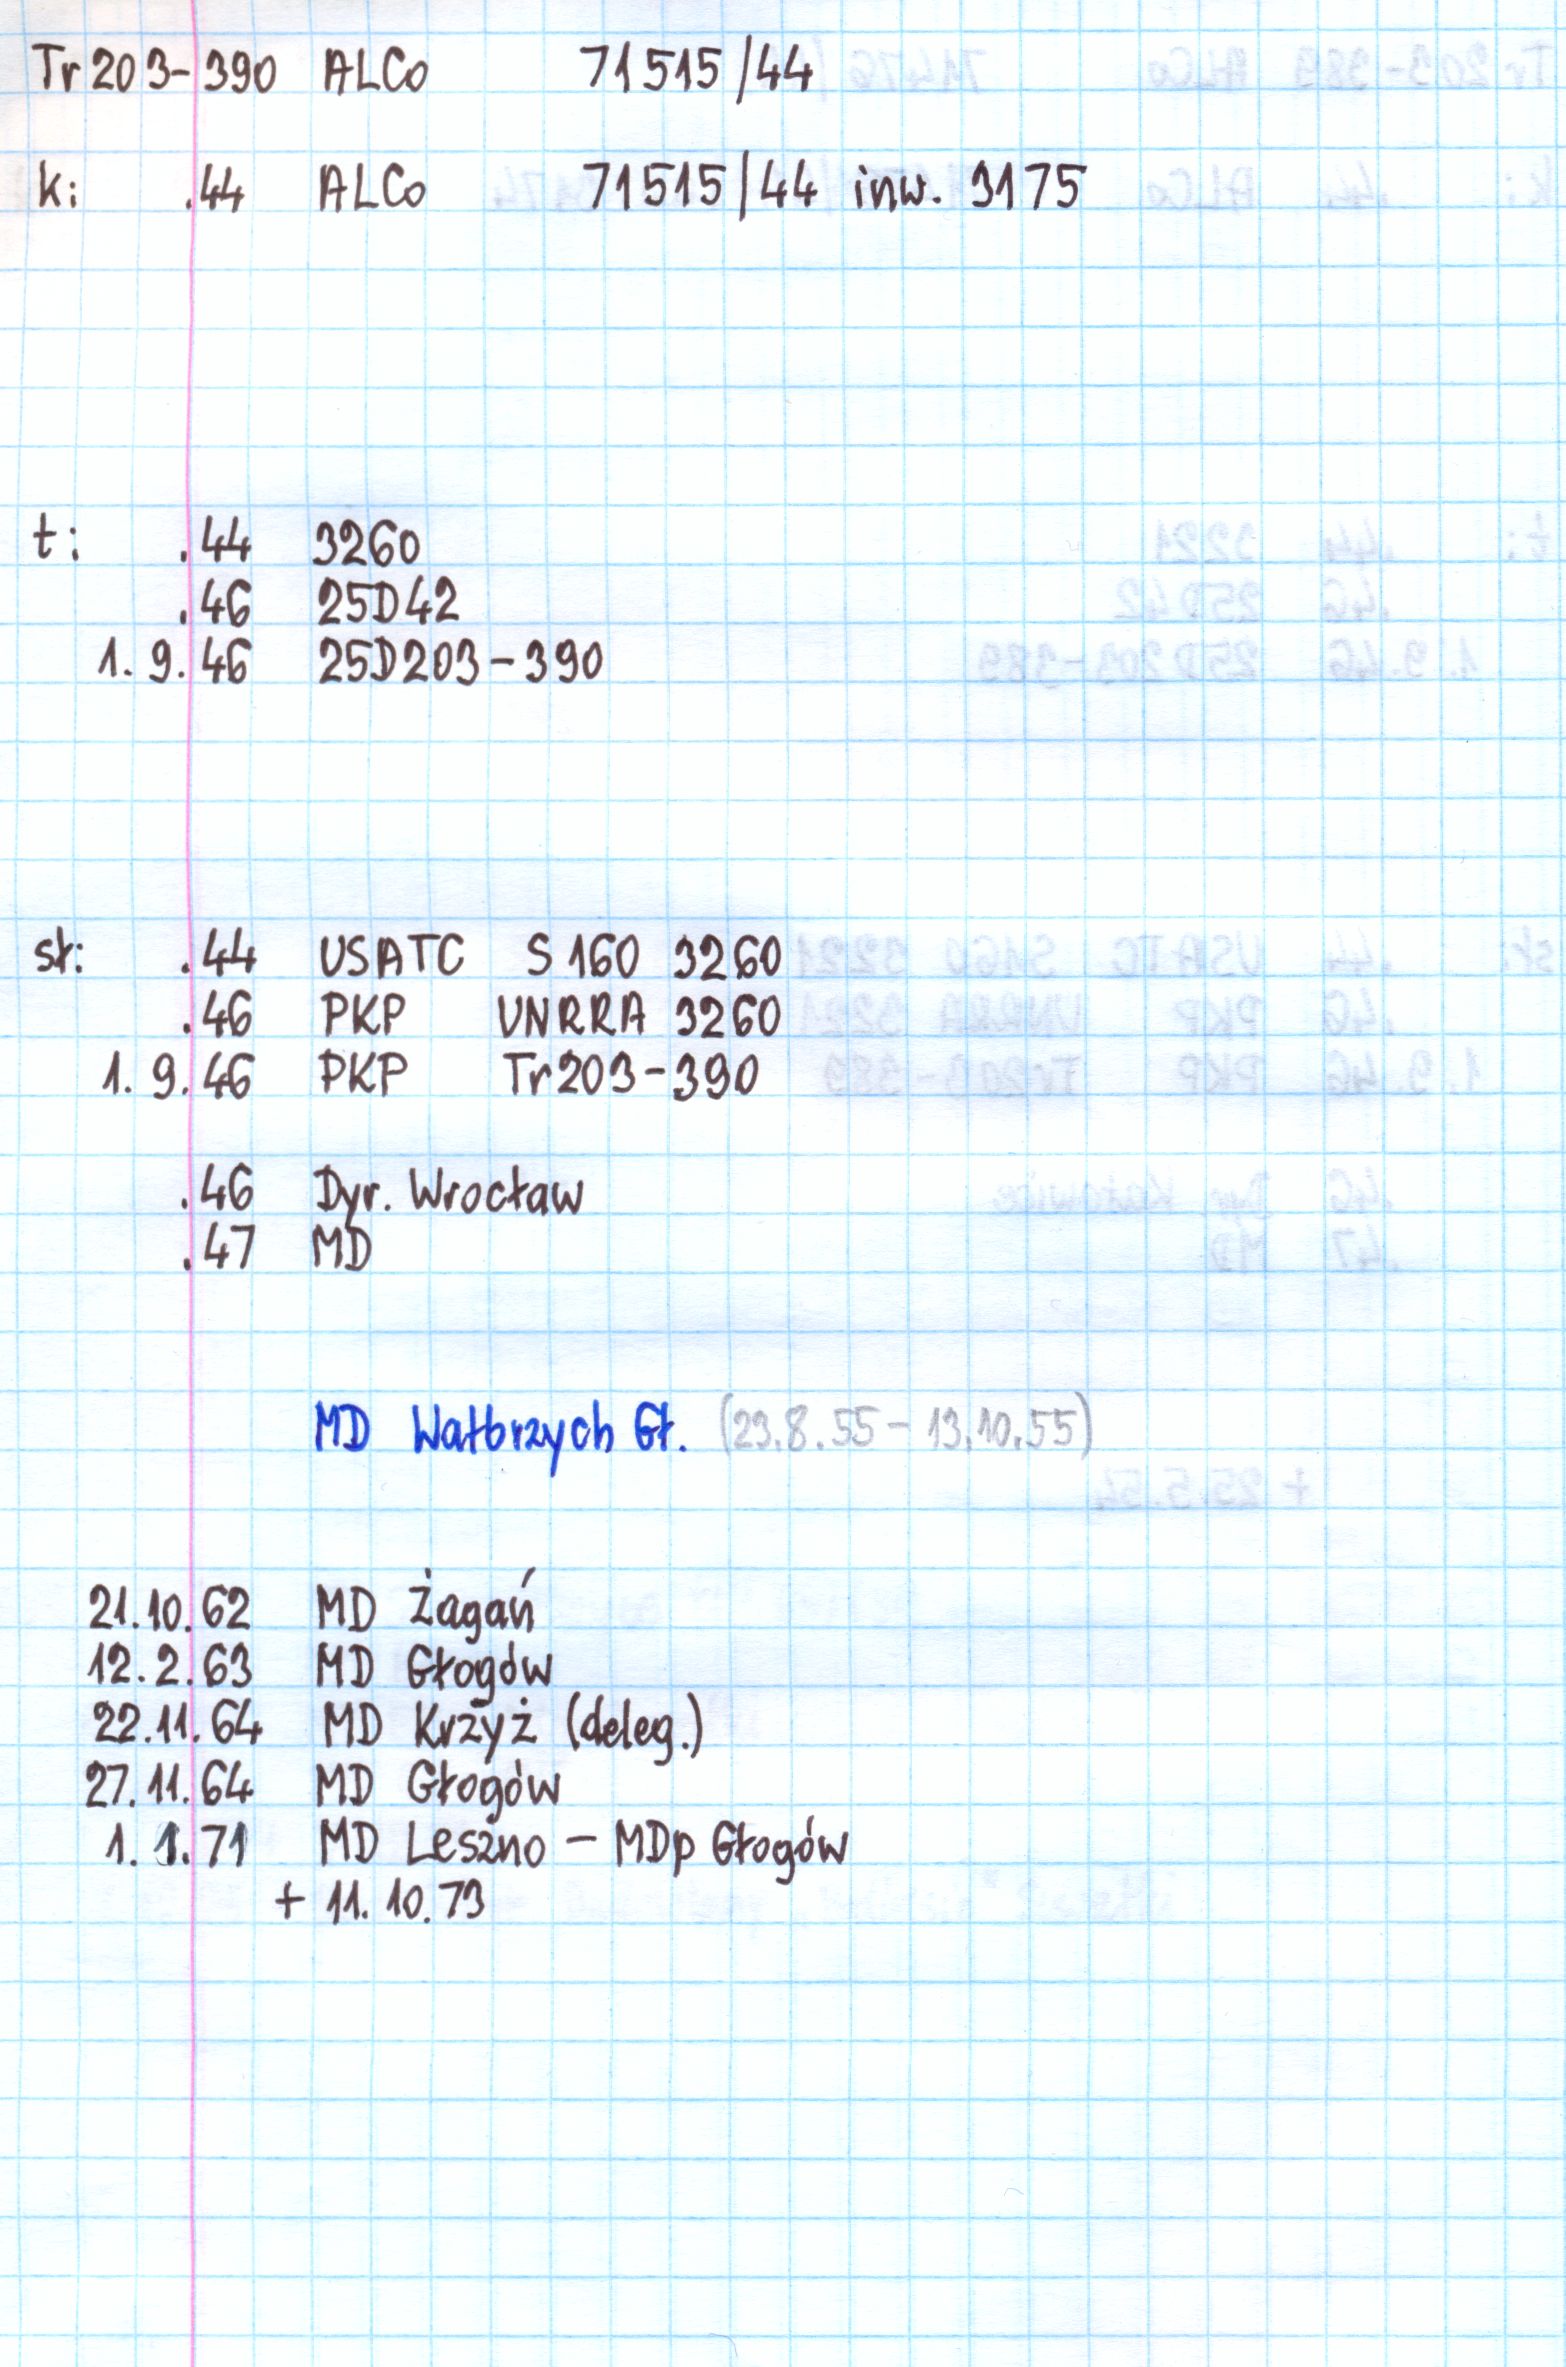 Tr203-390 ALCo 71515/44
k: .44 ALCo 71515/44 inw. 3175
t: .44 3260
.46 25D42
1.9.46 25D203-390
st: .44 USATC S160 3260
.46 PKP UNRRA 3260
1.9.46 PKP Tr203-390
.46 Dyr. Wrocław
.47 MD
MD Wałbrzych Gł. (23.8.55 - 13.10.55)
21.10.62 MD Żagań
12.2.63 MD Głogów
22.11.64 MD Krzyż (deleg.)
27.11.64 MD Głogów
1.1.71 MD Leszno - MDp Głogów
+ 11.10.73